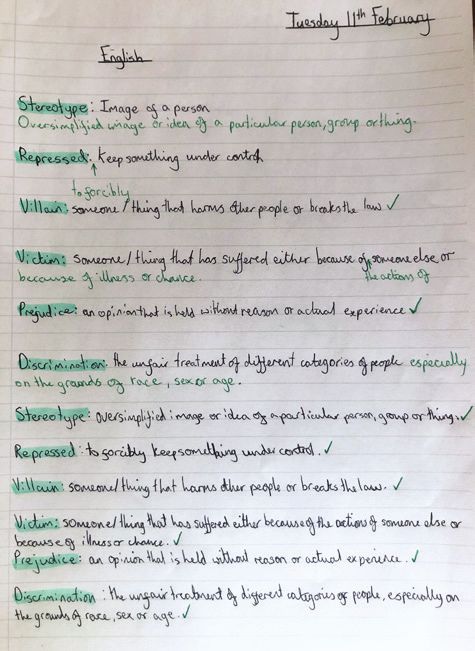 Tuesday 11th February
English
Stereotype: Image of a person
Oversimplified image or idea of a particular person, group or thing.
Repressed: Keep something under control
to forcibly
Villain: someone/thing that harms other people or breaks the law ✓
Victim: someone/thing that has suffered either because of someone else or
because of illness or chance. the actions of
Prejudice: an opinion that is held without reason or actual experience ✓
Discrimination: the unfair treatment of different categories of people especially
on the grounds of race, sex or age.
Stereotype: oversimplified image or idea of a particular person, group or thing. ✓
Repressed: to forcibly keep something under control. ✓
Villain: someone/thing that harms other people or breaks the law. ✓
Victim: someone/thing that has suffered either because of the actions of someone else or
because of illness or chance. ✓
Prejudice: an opinion that is held without reason or actual experience. ✓
Discrimination: the unfair treatment of different categories of people, especially on
the grounds of race, sex or age. ✓